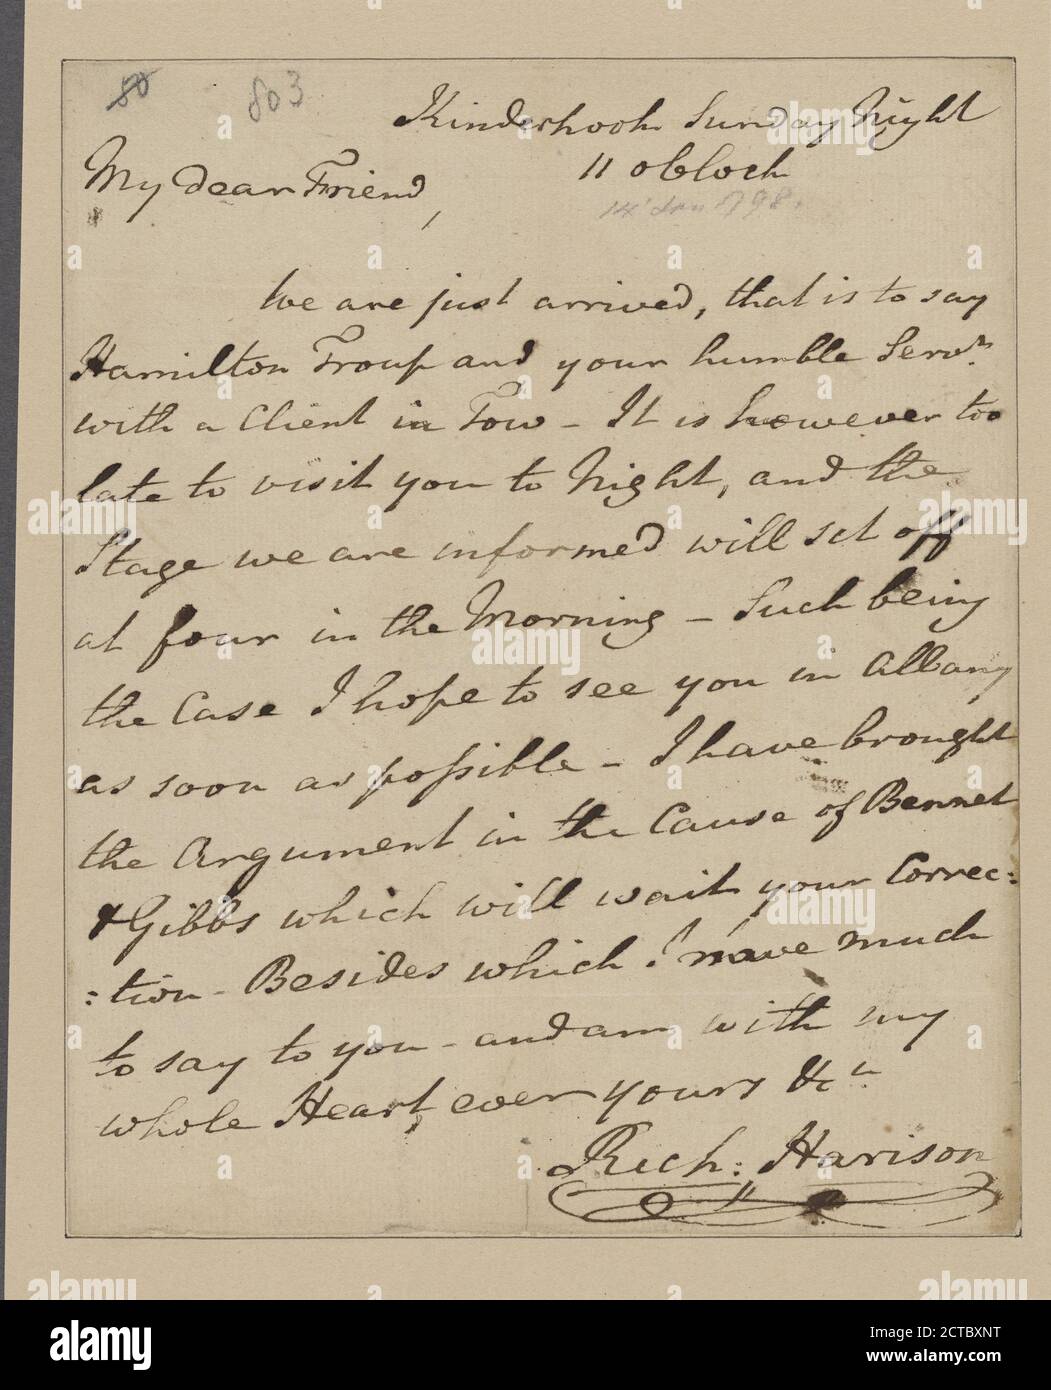 80
803
Kinderhook Sunday Night
11 oClock
My Dear Friend,
14 Jan 1798.
We are just arrived, that is to say
Hamilton Troup and your humble Servt.
with a Client in Tow - It is however too
late to visit you to Night, and the
Stage we are informed will set off
at four in the Morning - Such being
the Case I hope to see you in Albany
as soon as possible - I have brought
the Argument in the Cause of Bennet
& Gibbs which will wait your Correc:
:tion - Besides which I have much
to say to you - and am with my
whole Heart, ever yours &c
Rich: Harison
alamy
Image ID: 2CTBXNT
www.alamy.com